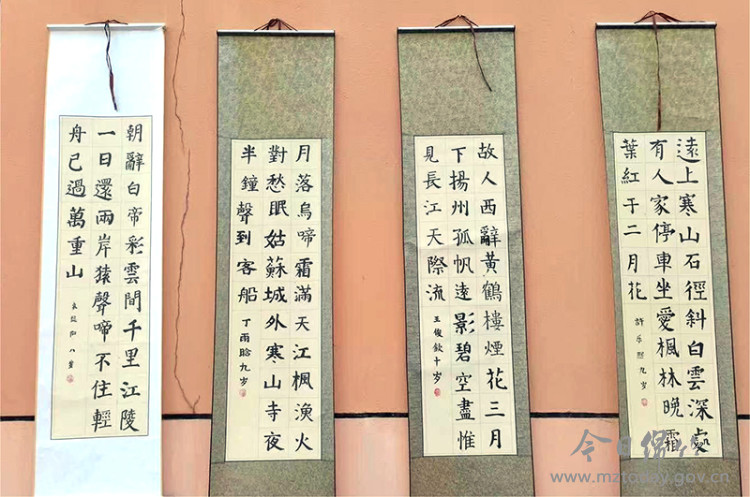 朝辭白帝彩雲間千里江陵
一日還兩岸猿聲啼不住輕
舟已過萬重山
八岁
月落烏啼霜滿天江楓漁火
對愁眠姑蘇城外寒山寺夜
半鐘聲到客船
丁雨晗九岁
故人西辭黃鶴樓煙花三月
下揚州孤帆遠影碧空盡惟
見長江天際流
王俊钦十岁
遠上寒山石徑斜白雲深處
有人家停車坐愛楓林晚霜
葉紅于二月花
許 九岁
今日绵竹
www.mztoday.gov.cn